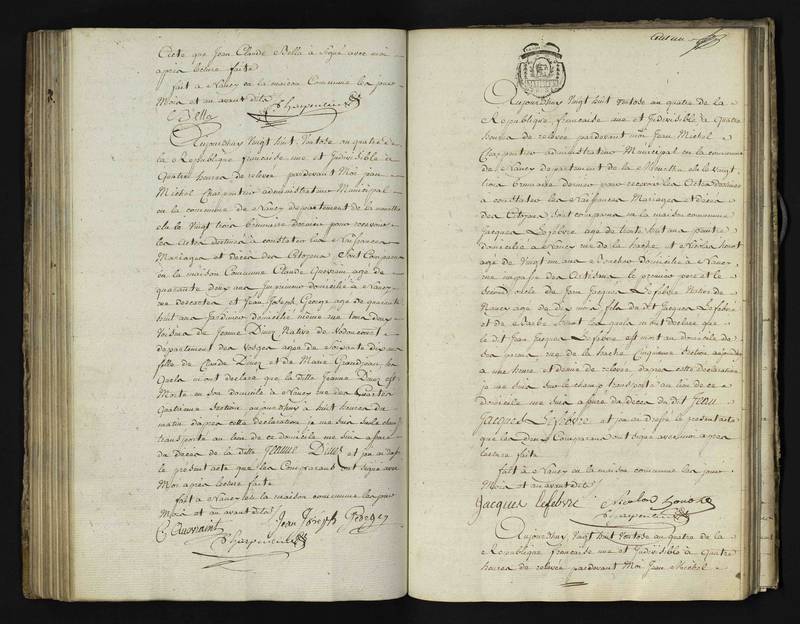 Acte que Jean Claude Bella à Signé avec moi
apres lecture faite
fait a Nancy en la maison Commune les jour
Mois et an avant dits
C Bella Charpentier
Aujourdhuy Vingt huit Ventose an quatre de
la Republique française une et Indivisible à
Quatre heures de relevée pardevant Moi jean
Michel Charpentier administrateur Municipal
en la commune de Nancy departement de la meurthe
elu le Vingt trois brumaire dernier pour recevoir
les Actes destinés a constater les Naissances
Mariages et decès des Citoyens Sont Comparus
en la maison Commune Claude age de
quarante deux ans Imprimeur domicilié a Nancy
rue descartes et Jean Joseph George age de quarante
huit ans Jardinier domicilié même rue tous deux
Voisins de Jeanne Native de
departement des Vosges agée de Soixante dix ans
fille de Claude et de Marie Grandjean, les
Quels m'ont declaré que la ditte Jeanne est
Morte en son domicile a Nancy rue des
Quatrieme Section aujourdhuy à huit heures du
matin dapres cette declaration je me suis sur le champ
transporté au lieu de ce domicile me suis assuré
du Deces de la ditte Jeanne et j'en ai dressé
le présent acte que les Comparants ont signé avec
Moi après lecture faite
fait a Nancy en la maison commune les jour
Mois et an avant dits
Jean Joseph George
Charpentier
Aujourdhuy Vingt huit Ventose an quatre de la
Republique française une et Indivisible à Quatre
heures de relevée pardevant moi Jean Michel
Charpentier administrateur Municipal en la commune
de Nancy departement de la Meurthe elu le Vingt
trois brumaire dernier pour recevoir les Actes destinés
a constater les Naissances Mariages et décès
des Citoyens Sont comparus en la maison commune
Jacques Lefebvre age de trente huit ans peintre
domicilié a Nancy rue de la hache et Nicolas
agé de Vingt neuf ans domicilié à Nancy
rue des Artisans le premier pere et le
Second oncle de Jean Jacques Lefebvre Natif de
Nancy age de dix mois fils du dit Jacques Lefebvre
et de Barbe les quels m'ont declaré que
le dit Jean Jacques Lefebvre est mort au domicile de
ses peres rue de la hache Cinquieme Section
a une heure et demie de relevée dapres cette declaration
je me suis sur le champ transporté au lieu de ce
domicile me suis assuré du Deces du dit Jean
Jacques Lefebvre et j'en ai dressé le present acte
que les dits Comparants ont signé avec moi apres
lecture faite
fait a Nancy en la maison commune les jour
Mois et an avant dits
Jacques Lefebvre Nicolas
Charpentier
Aujourdhuy Vingt huit Ventose an quatre de la
Republique française une et Indivisible à Quatre
heures de relevée pardevant Moi Jean Michel